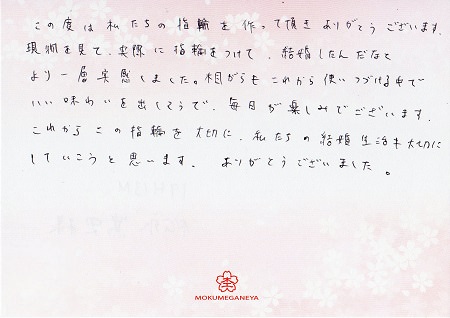 この度は私たちの指輪を作って頂きありがとうございます。
現物を見て、実際に指輪をつけて、結婚したんだなと
より一層実感しました。相がらもこれから使いつづける中で
いい味わいを出してそうで、毎日が楽しみでございます。
これからこの指輪を大切に、私たちの結婚生活も大切に
していこうと思います。ありがとうございました。
MOKUMEGANEYA